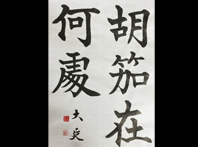 胡笳在
何處
大延